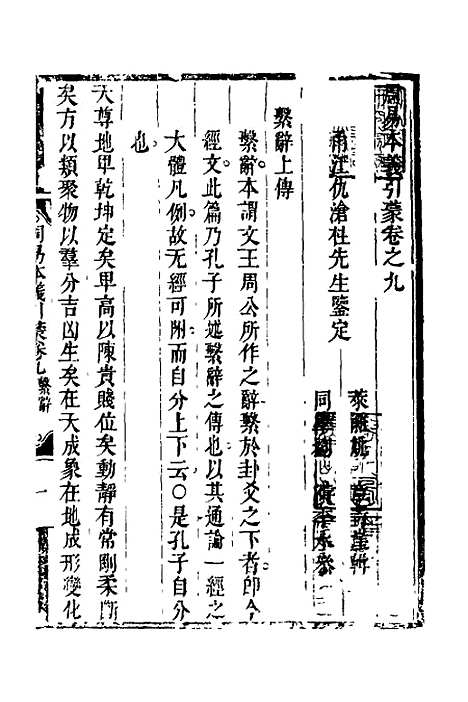 周易本義引蒙卷之九
甬江仇滄柱先生鑒定
同
繫辭上傳
繫辭本謂文王周公所作之辭繫於卦爻之下者卽今
經文此篇乃孔子所述繫辭之傳也以其通論一經之
大體凡例故无經可附而自分上下云○是孔子自分
也
天尊地卑乾坤定矣卑高以陳貴賤位矣動靜有常剛柔斷
矣方以類聚物以羣分吉凶生矣在天成象在地成形變化
周易本義引蒙卷九 繫辭 一